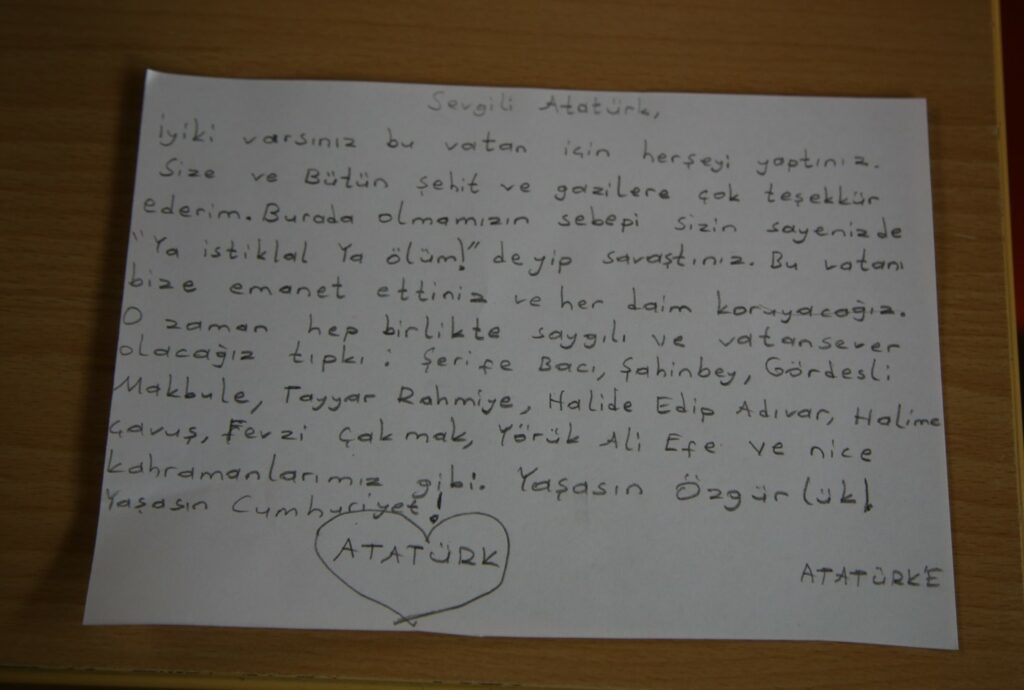 Sevgili Atatürk,
iyiki varsınız bu vatan için herşeyi yaptınız.
Size ve Bütün şehit ve gazilere çok teşekkür
ederim. Burada olmamızın sebepi sizin sayenizde
"Ya istiklal Ya ölüm!" deyip savaştınız. Bu vatanı
bize emanet ettiniz ve her daim koruyacağız.
O zaman hep birlikte saygılı ve vatansever
olacağız tıpkı: Şerife Bacı, Şahinbey, Gördesli
Makbule, Tayyar Rahmiye, Halide Edip Adıvar, Halime
Çavuş, Fevzi Çakmak, Yörük Ali Efe ve nice
kahramanlarımız gibi. Yaşasın Özgürlük!
Yaşasın Cumhuriyet!
ATATÜRK
ATATÜRK'E